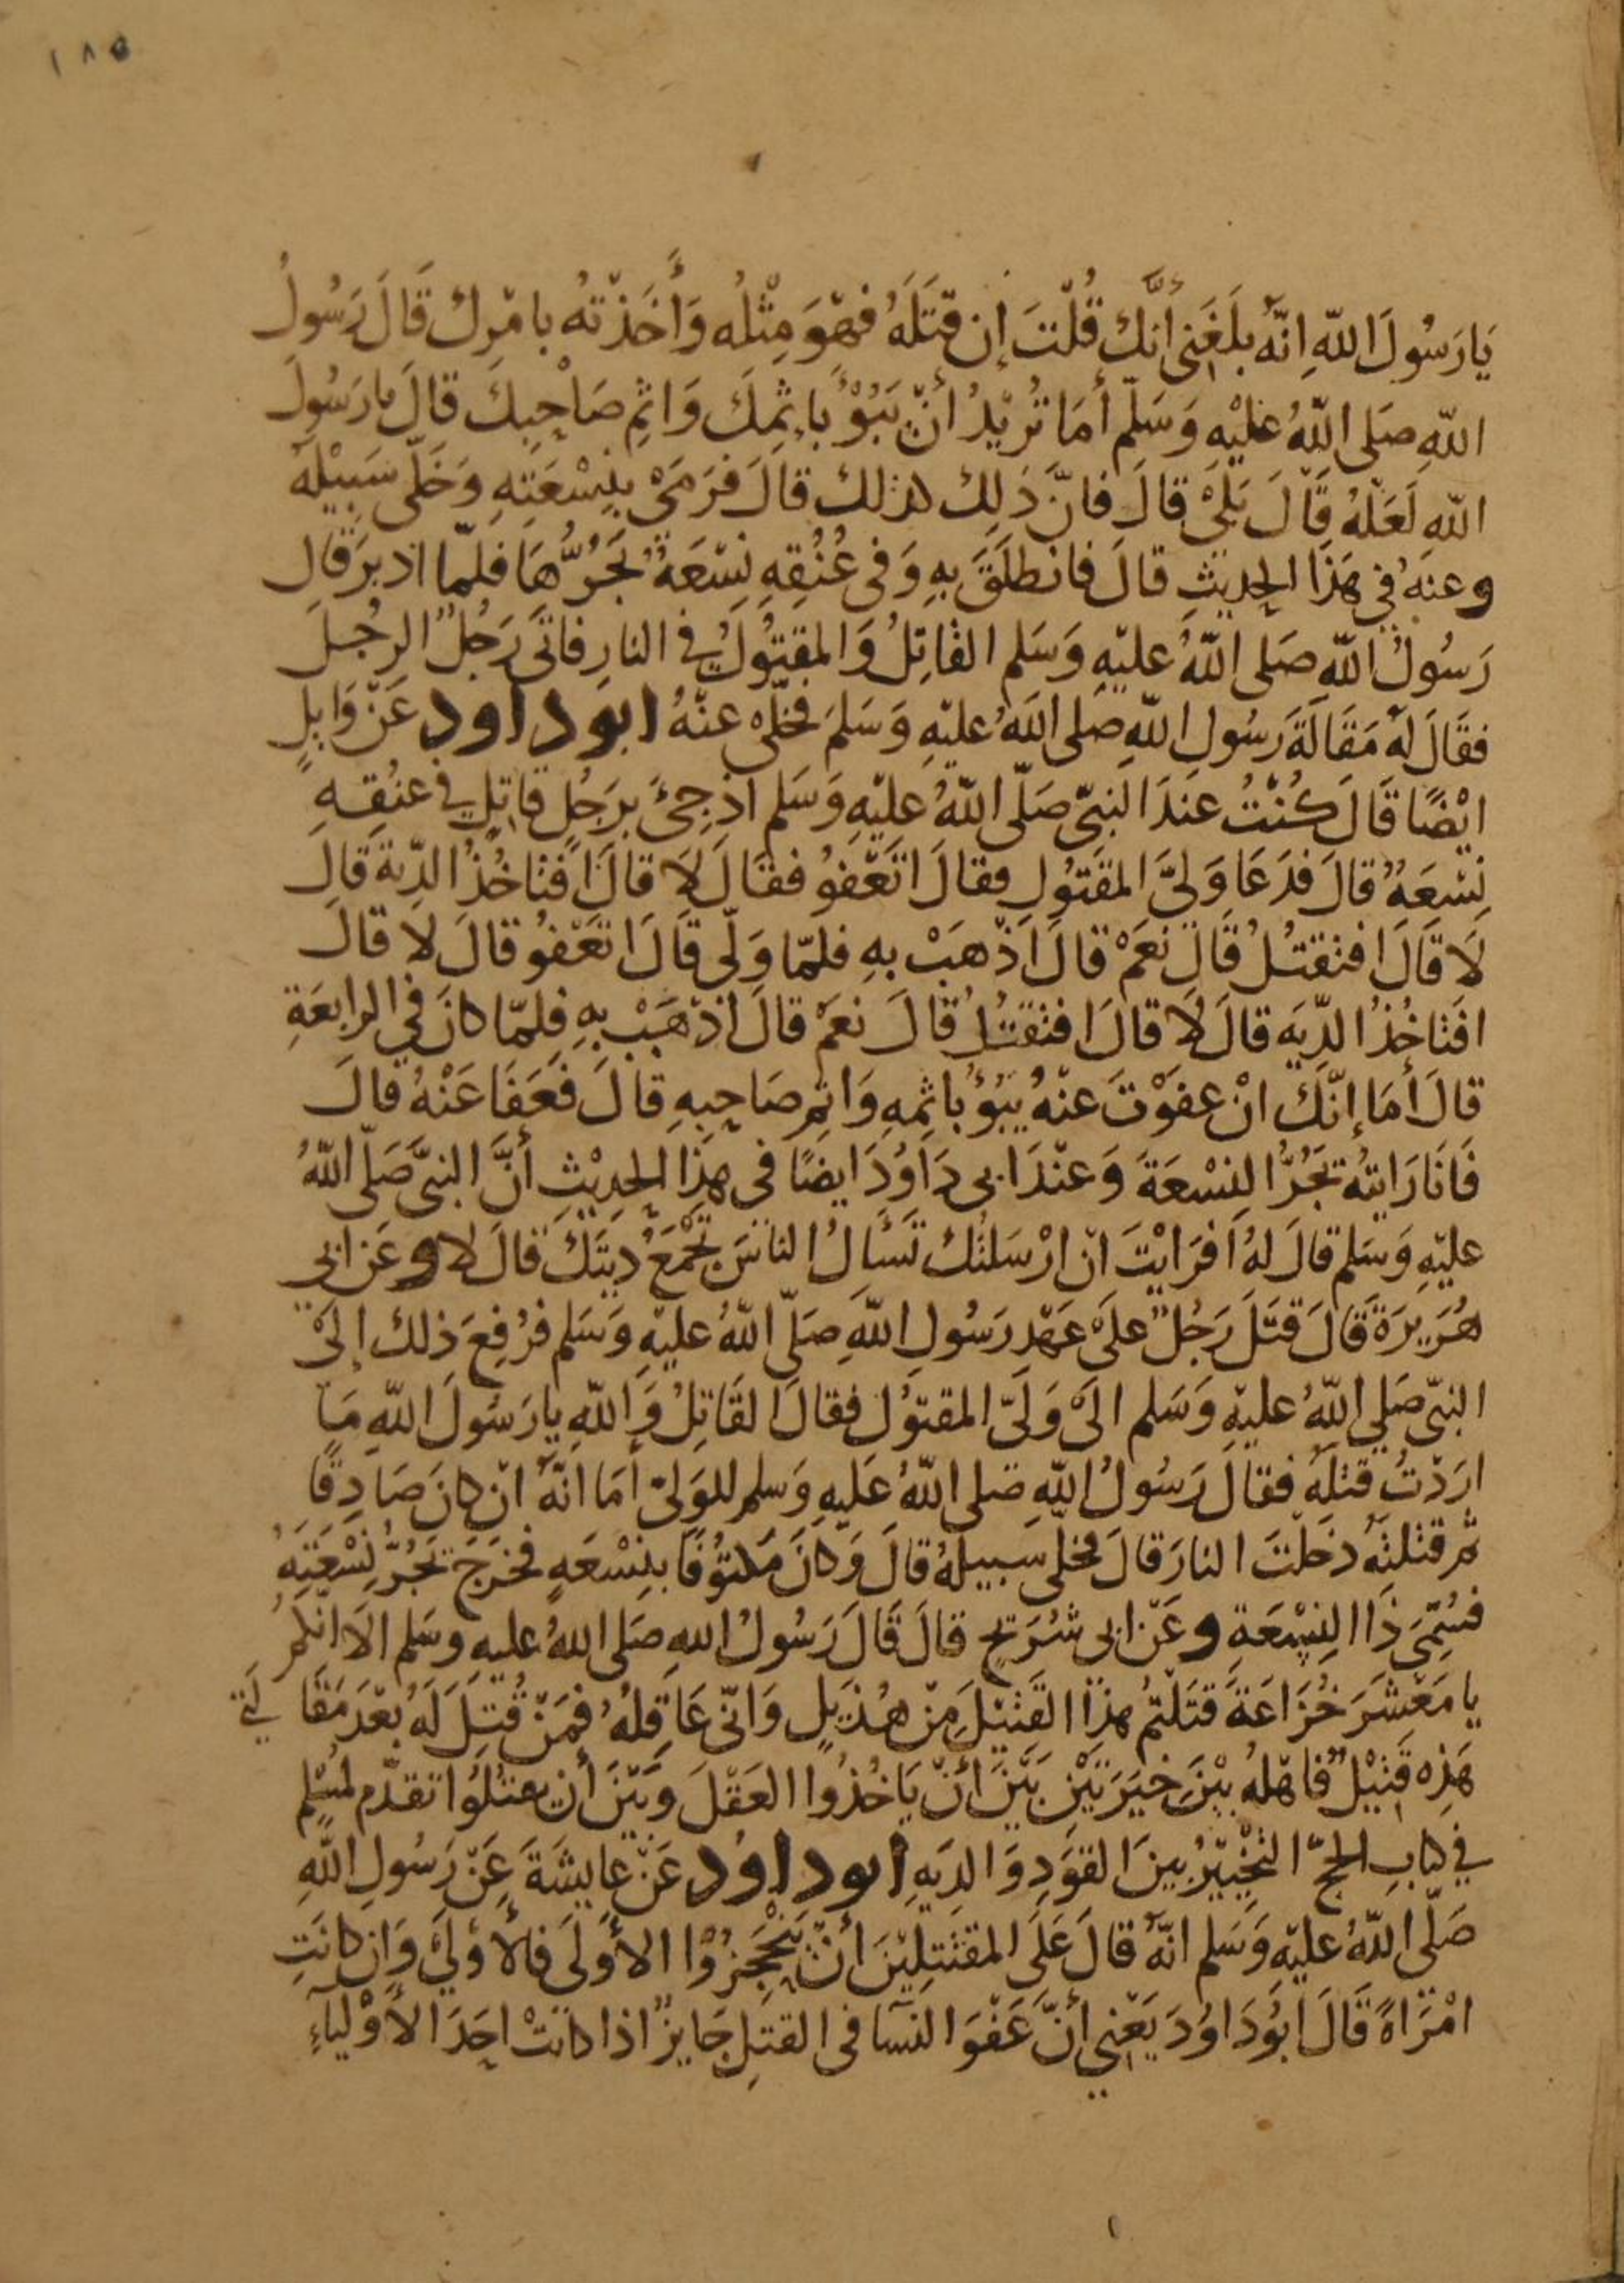 ١٨٥
يَا رَسُولَ اللّهِ اِنَّهُ بَلَغَنِي أَنَّكَ قُلْتَ إِن قَتَلَهُ فَهُوَ مِثْلُه وَأَخَذْتُهُ بِامْرِكَ قَالَ رَسُولُ
اللّهِ صَلى اللّهُ عَلَيْهِ وَسَلّم أَمَا تُرِيْدُ أَنْ يَبُوْءَ بِإِثمِكَ وَاثِمِ صَاحِبِكَ قالَ يا رَسُولَ
اللّهِ لَعَلّهُ قَالَ بَلَىْ قالَ فَانَّ ذَلِكَ كذلك قالَ فَرَمَىْ بِنِسْعَتِهِ وَخَلّى سَبِيْلَهُ
وعنهُ في هَذَا الحِديثِ قالَ فانطلَقَ بهِ وَفى عُنُقِهِ نِسْعَةٌ يَجُرُّهَا فلمّا ادبرَ قال
رَسُولُ اللّهِ صَلى اللّهُ عليْهِ وَسَلم القَاتِلُ وَالمقتُولُ فى النارِ فاتَى رَجُلٌ الرجُلَ
فقَالَ لهُ مَقَالَةَ رَسُولِ اللّهِ صَلى اللّهُ عليْهِ وَسَلمَ فخلّى عنْهُ ابو داود عَنْ وَايِلٍ
ايْضًا قَالَ كُنْتُ عندَ النبيّ صَلّى اللّهُ عليْهِ وَسَلم اذ جِئَ برَجُلٍ قاتِلٍ في عنُقِهِ
نِسْعَهٌ قالَ فدَعَا وَليَّ المقتُولِ فقالَ اتَعْفُو فقالَ لا قالَ افتاخُذُ الدّيةَ قالَ
لَا قَالَ افتقتُلُ قَالَ نعَمْ قالَ اذْهَبْ بهِ فلمّا وَلّى قَالَ اتعْفُو قالَ لا قالَ
افتَاخُذُ الدّيَه قالَ لَا قالَ افتقتُلُ قَالَ نعَمْ قالَ اذهَبْ بهِ فلمّا كانَ في الرابعَةِ
قالَ أمَا إنّكَ انْ عفوْتَ عنْهُ يَبُوْءُ بإثمِهِ وَاثِمِ صَاحِبهِ قالَ فَعَفَا عَنْهُ قالَ
فَانَا رَايتُه يَجُرُّ النِسْعَةَ وَعنْدَ ابى دَاوُدَ ايضًا فى هذا الحدِيْثِ أنَّ النبيَّ صَلّى اللّهُ
عليْهِ وَسَلم قالَ لهُ افَرَايْتَ انْ ارْسَلتُكَ تَسْأَلُ الناسَ تجْمَعُ دِيَتَكَ قالَ لا وعَن ابي
هُرَيرَةَ قَالَ قتلَ رَجُلٌ علىَ عَهْدِ رَسُولِ اللّهِ صَلّى اللّهُ عليْهِ وَسَلم فرُفِعَ ذلك إلىْ
النبيّ صَلي اللّهُ عليْهِ وَسَلم الىَ وَلىّ المقتوُلِ فقالَ القَاتِلُ وَاللّهِ يا رَسُولَ اللّهِ مَا
ارَدْتُ قتْلَهُ فقالَ رَسُولُ اللّهِ صَلى اللّهُ عَليهِ وَسلم للوَلىّ أمَا انّهُ انْ كانَ صَادِقًا
ثم قتلتَهُ دَخلْتَ النارَ قالَ فخلى سبيلَهُ قالَ وَكانَ مَكتُوْفًا بنِسْعَهٍ فخرَجَ يَجُرُّ نِسْعَتَهُ
فسُمِّىَ ذَا النِسْعَةِ وعَنْ ابى شُرَيحٍ قالَ قَالَ رَسُولُ اللهِ صَلى اللهُ عليهِ وسَلم الَا انكمُ
يا مَعْشَرَ خُزَاعَةَ قَتَلْتُم هذا القَتيْلَ مِنْ هُذَيلٍ وَانّى عَاقِلُهُ فمَنْ قُتِلَ لَهُ بعْدَ مَقَالَتي
هَذِه قَتيْلٌ فاهْلهُ بيْنَ خِيَرَتَيْنِ بَيْنَ أنْ يَاخُذُوا العَقْلَ وَبَيْنَ أنْ يقتلُوا تقدّم لمسْلِم
في كتابِ الحجّ التخْيِيْرُ بينَ القوَدِ وَالدِيَهِ ابو داود عَنْ عايِشَةَ عَنْ رَسُولِ اللّهِ
صَلّى اللّهُ عليْهِ وَسَلم انّهُ قالَ عَلَى المقتَتِلِيْنَ أنْ يَنْحَجِزُوْا الأوَلَى فَالأوْلىَ وَانِ كانَتِ
امْرَاةً قَالَ ابُودَاوُدَ يَعْنِي أنَّ عَفْوَ النسَآ فى القتلِ جَايِزٌ اذا كانتْ احَدَ الأوْليآءِ